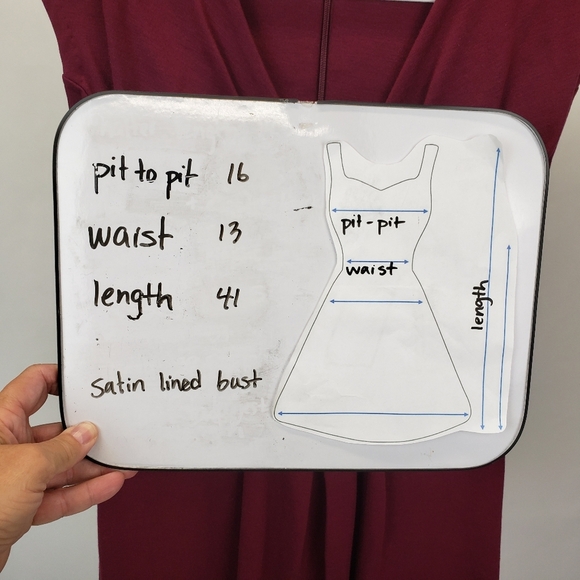 pit to pit 16
waist 13
length 41
satin lined bust
pit-pit
waist
length